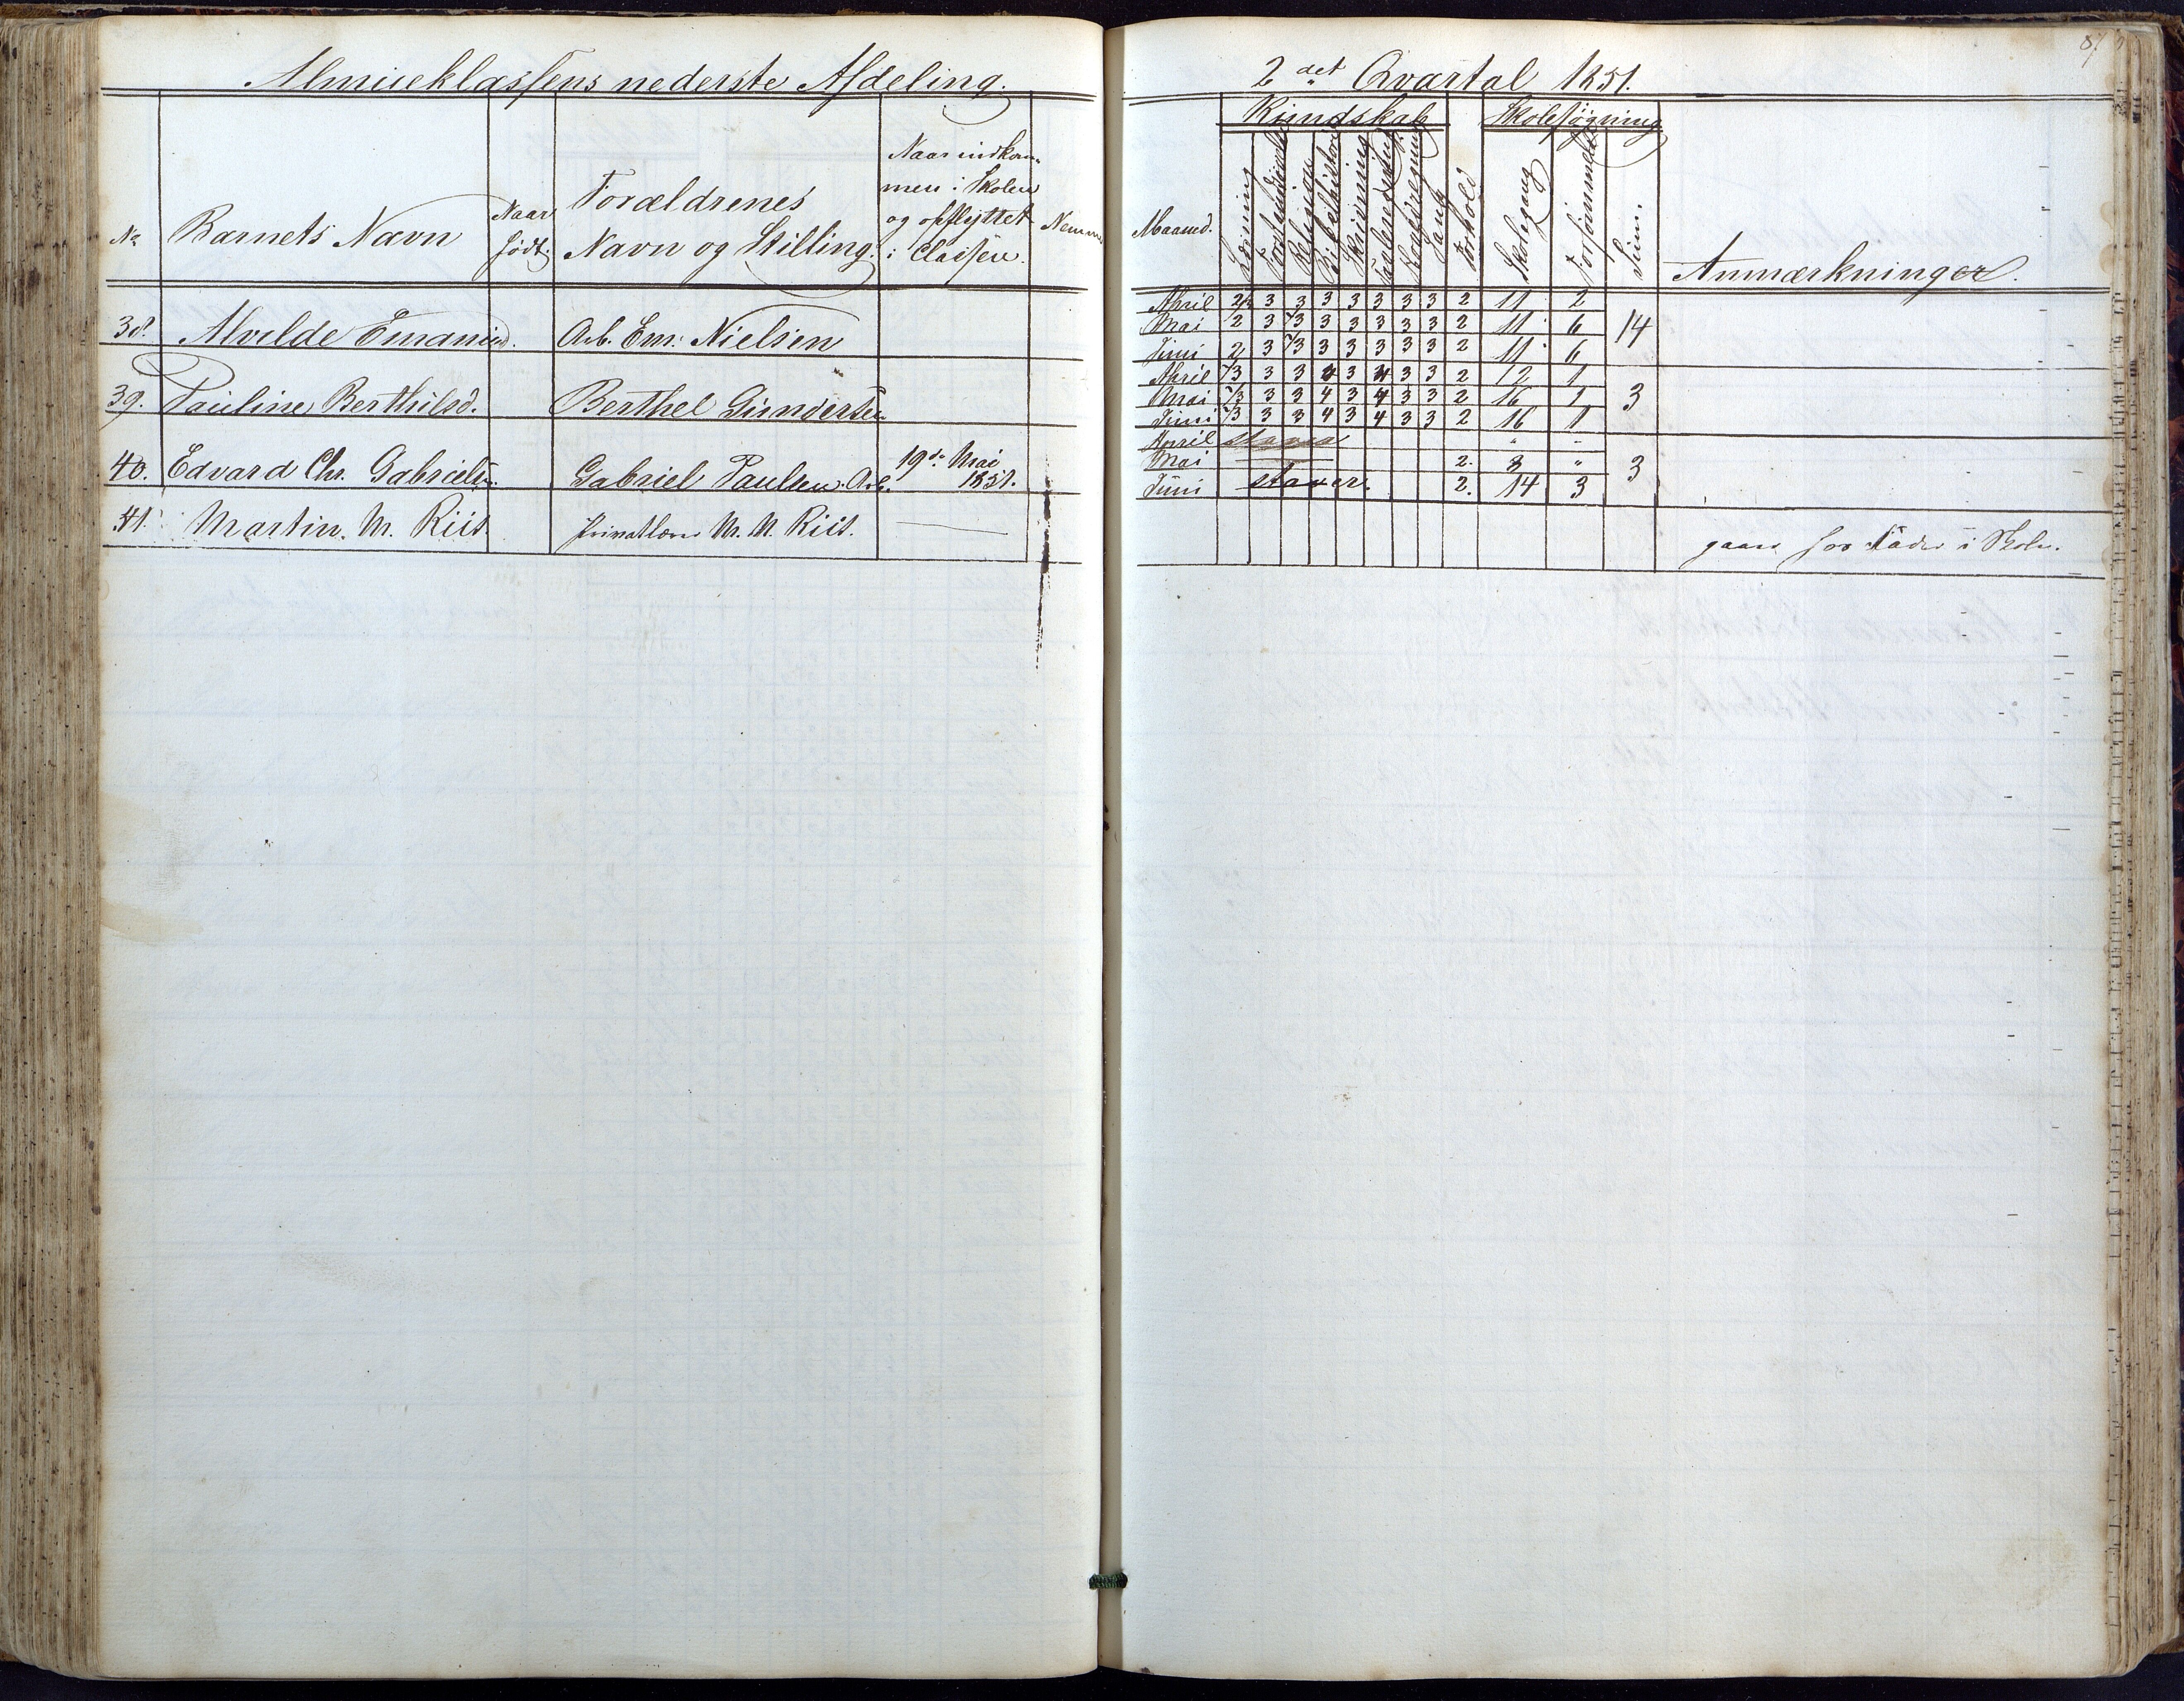 Almueklassens nederste Afdeling.
No
Barnets Navn
Naar
født.
Forældrenes
Navn og Stilling.
Naar indkom-
men i Skolen
og opflyttet
i Classen.
Nemme
38. Alvilde Emanueld. Arb. Em. Nielsen
39. Pauline Berthilsd. Berthel Gundersen
40. Edvard Chr. Gabrielsen. Gabriel Paulsen. Arb. 19de Mai
1851.
41. Martin. M. Riis. Privatlærer M. M. Riis. —
87
2det Qvartal 1851.
Maaned.
Kundskab
Læsning
Forstandsøvelse
Religion
Bibelhistorie
Skrivning
Tavleregning
Hovedregning
Sang
Forhold
Skolesøgning
Skolegang
Forsømmelse
Sum.
Anmærkninger.
April 2/3 3 3 3 3 3 3 3 2 11 2
Mai 2 3 2/3 3 3 3 3 3 2 11 6 14
Juni 2 3 2/3 3 3 3 3 3 2 11 6
April 2/3 3 3 4 3 4 3 3 2 12 1
Mai 2/3 3 3 4 3 4 3 3 2 16 1 3
Juni 2/3 3 3 4 3 4 3 3 2 16 1
April staver " "
Mai — 2. 3 " 3
Juni staver. 2. 14 3
gaaer for Fader i Skole.